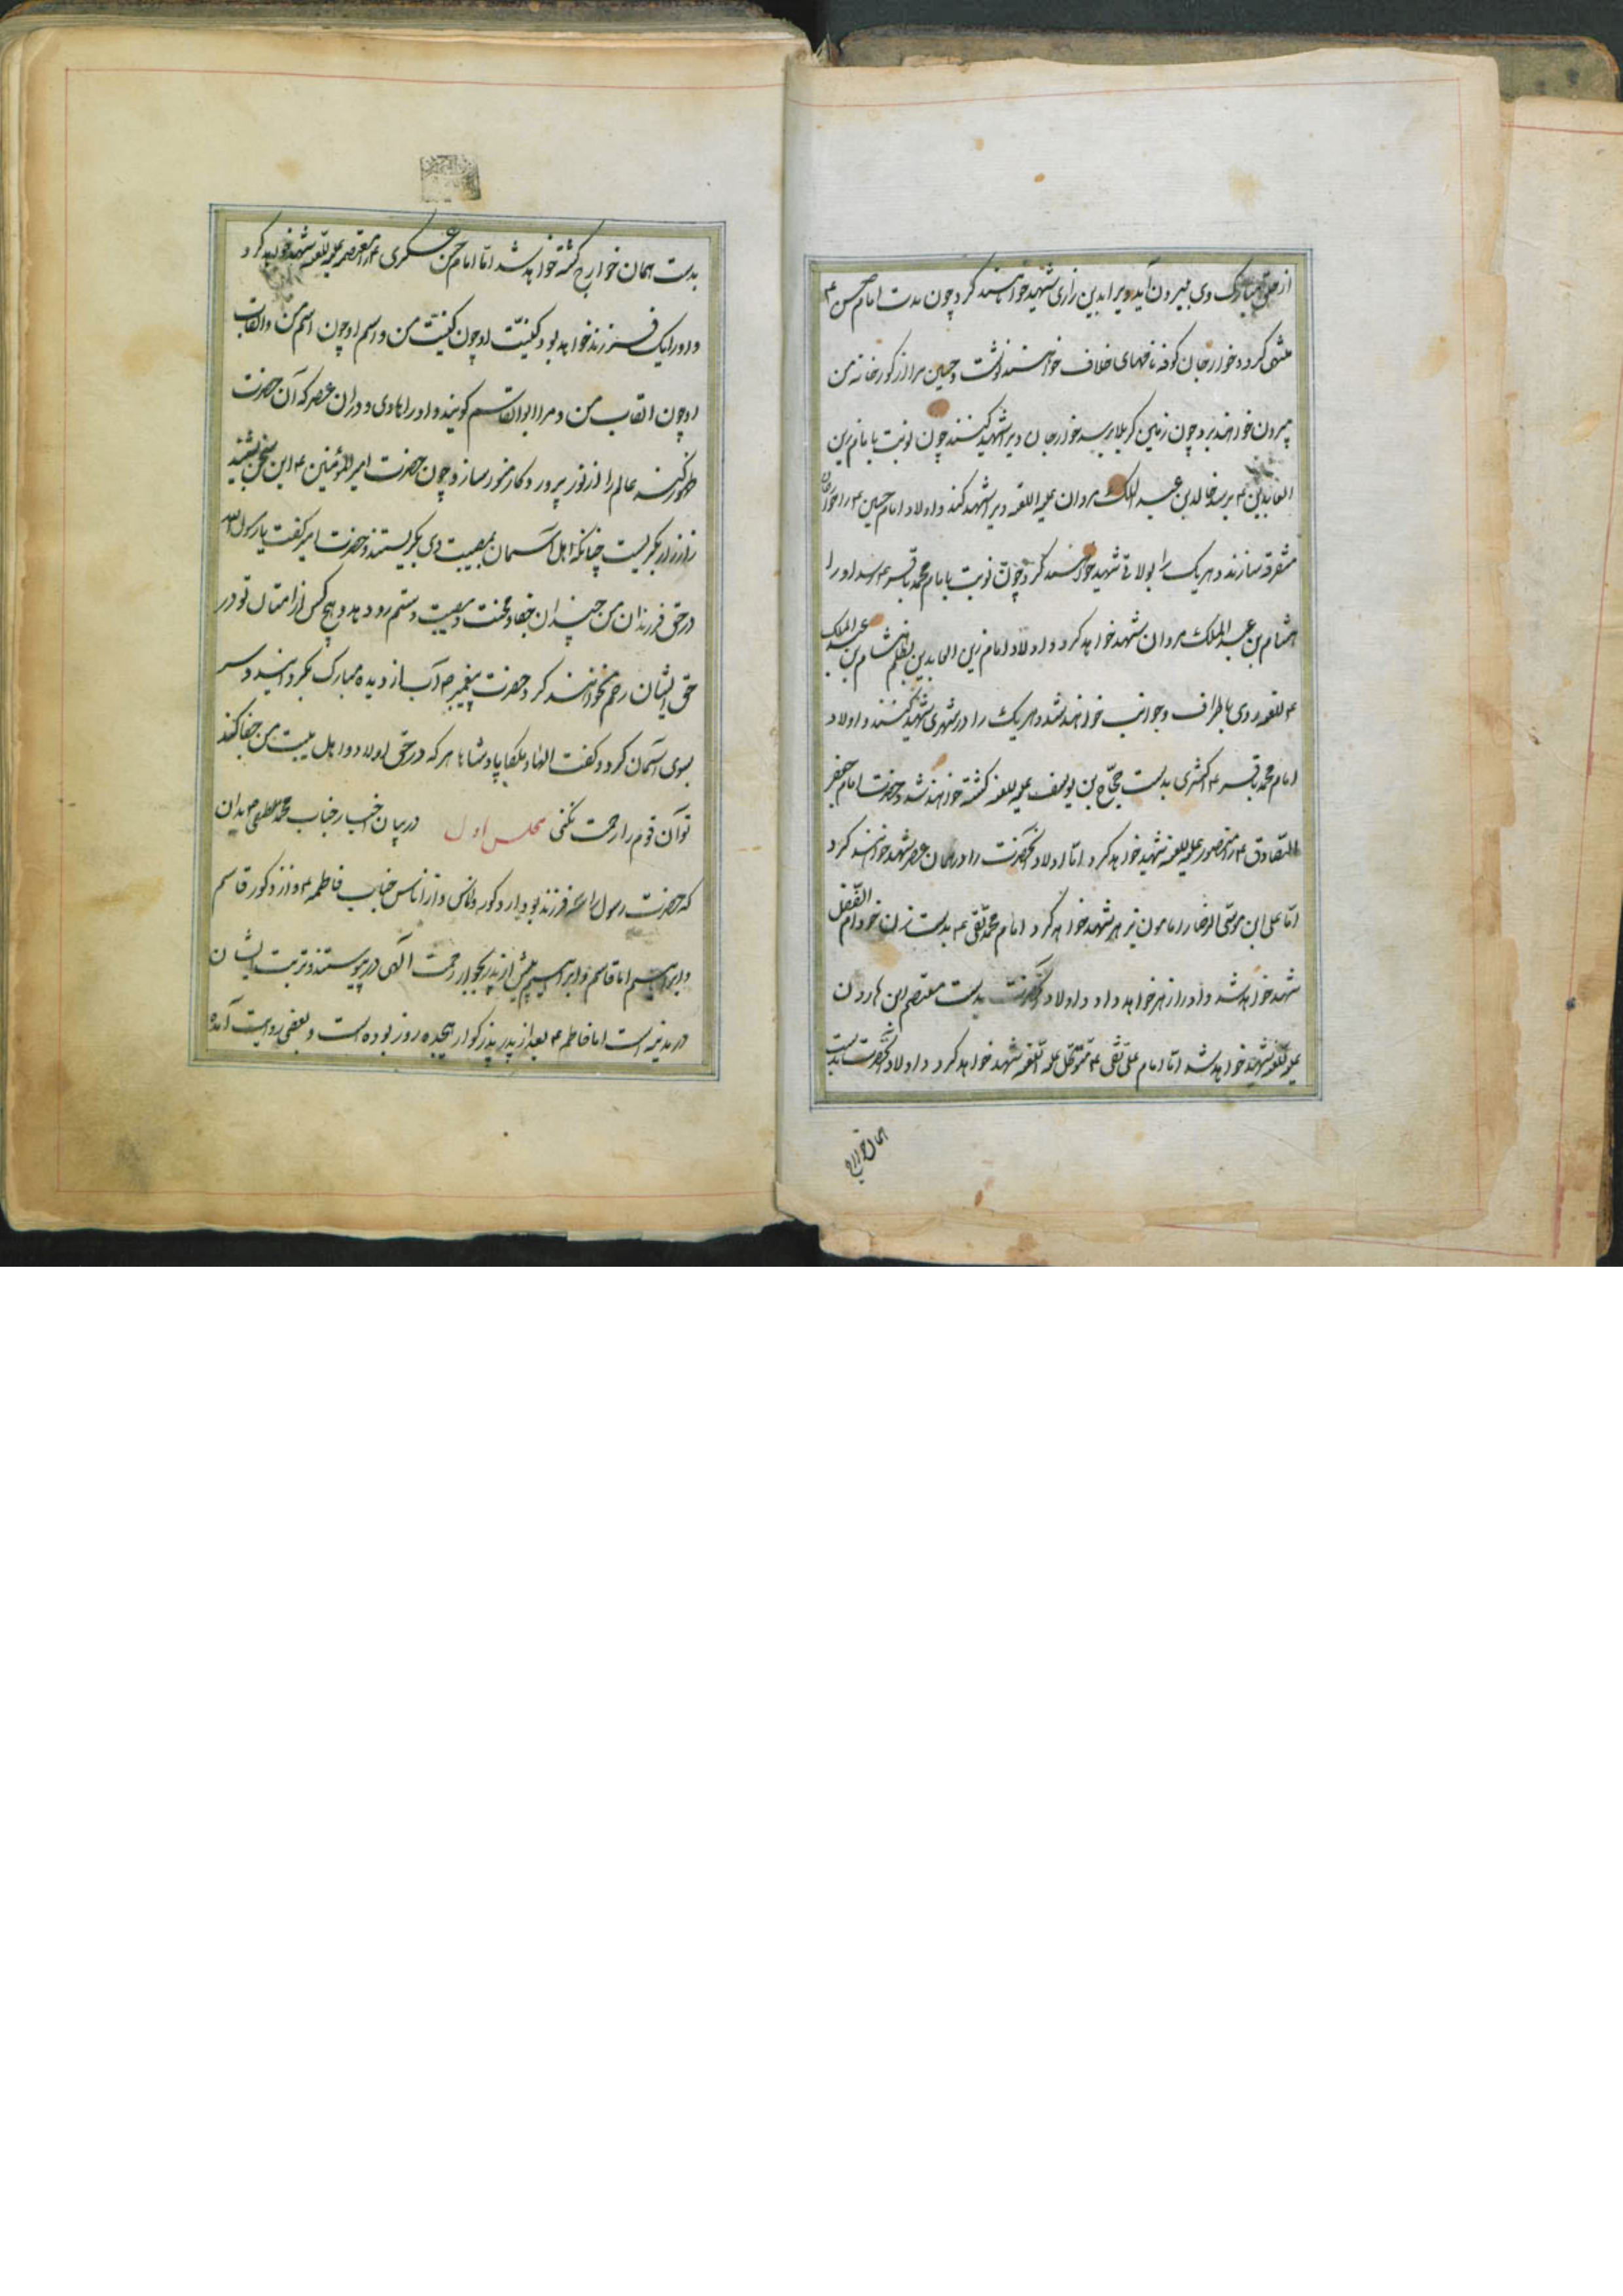 از حلق مبارک وی بیرون آید ویرا بدین زاری شهید خواهند کرد و چون مدت امام حسن ع
منتهی کردد خوارجان کوفه نامهای خلاف خواهند نوشت و حسین مرا از کورخانه من
بیرون خواهند برد چون زمین کربلا برسد خوارجان ویرا شهید کنند چون نوبت بامام زین
العابدین ع برسد خالد بن عبد الملک مروان علیه اللعنه ویرا شهید کند و اولاد امام حسین ع را خوارجان
متفرقه سازند و هر یک را بولایتی شهید خواهند کرد و چون نوبت بامام محمد باقر ع رسد او را
هشام بن عبد الملک مروان شهید خواهد کرد و اولاد امام زین العابدین بظلم هشام بن عبد الملک
باطراف و جوانب خواهند شد و هر یک را در شهری شهید کنند و اولاد
امام محمد باقر ع اکثری بدست حجاج بن یوسف علیه اللعنه کشته خواهند شد و حضرت امام جعفر
الصادق ع را منصور علیه اللعنه شهید خواهد کرد اما اولاد آنحضرت را در همان عصر شهید خواهند کرد
اما علی ابن موسی الرضا را مامون بزهر شهید خواهد کرد امام محمد تقی ع بدست زن خود ام الفضل
شهید خواهد شد و او را زهر خواهد داد و اولاد آنحضرت بدست معتصم ابن هارون
علیه اللعنه شهید خواهد شد اما امام علی نقی ع متوکل علیه اللعنه شهید خواهد کرد و اولاد آنحضرت بدست
بدست همان خوارج کشته خواهد شد اما امام حسن عسکری ع را معتصم علیه اللعنه شهید خواهد کرد
و او را یک فرزند خواهد بود کنیت او چون کنیت من و اسم او چون اسم من و القاب
او چون القاب من و مرا ابوالقاسم کویند و او را هادی و دران عصر که آن حضرت
ظهور کند عالم را از نور پرورد کار منور سازد چون حضرت امیر المؤمنین ع این سخن بشنید
زار زار بکریست چنانکه اهل آسمان بمصیبت وی بکریستند و حضرت امیر کفت یا رسول الله
در حق فرزندان من چندان جفا و محنت و مصیبت و ستم رو دهد و هیچ کس از امتان تو در
حق ایشان رحم نخواهند کرد حضرت پیغمبر ص آب از دیده مبارک بکردانید و سر
بسوی آسمان کرد و کفت الها و ملکا پادشاها هر که در حق اولاد و اهل بیت من جفا کند
تو آن قوم را رحمت نکنی مجلس اول در بیان اخبار جناب محمد مصطفی ص بدان
که حضرت رسول را فرزند بود از ذکور و اناس و از اناس جناب فاطمه ع و از ذکور قاسم
و ابراهیم اما قاسم و ابراهیم پیش از پدر بجوار رحمت الهی در پیوستند و تربت ایشان
در مدینه است اما فاطمه ع بعد از پدر بزرکوار هیجده روز بوده است و بعضی روایت آمده